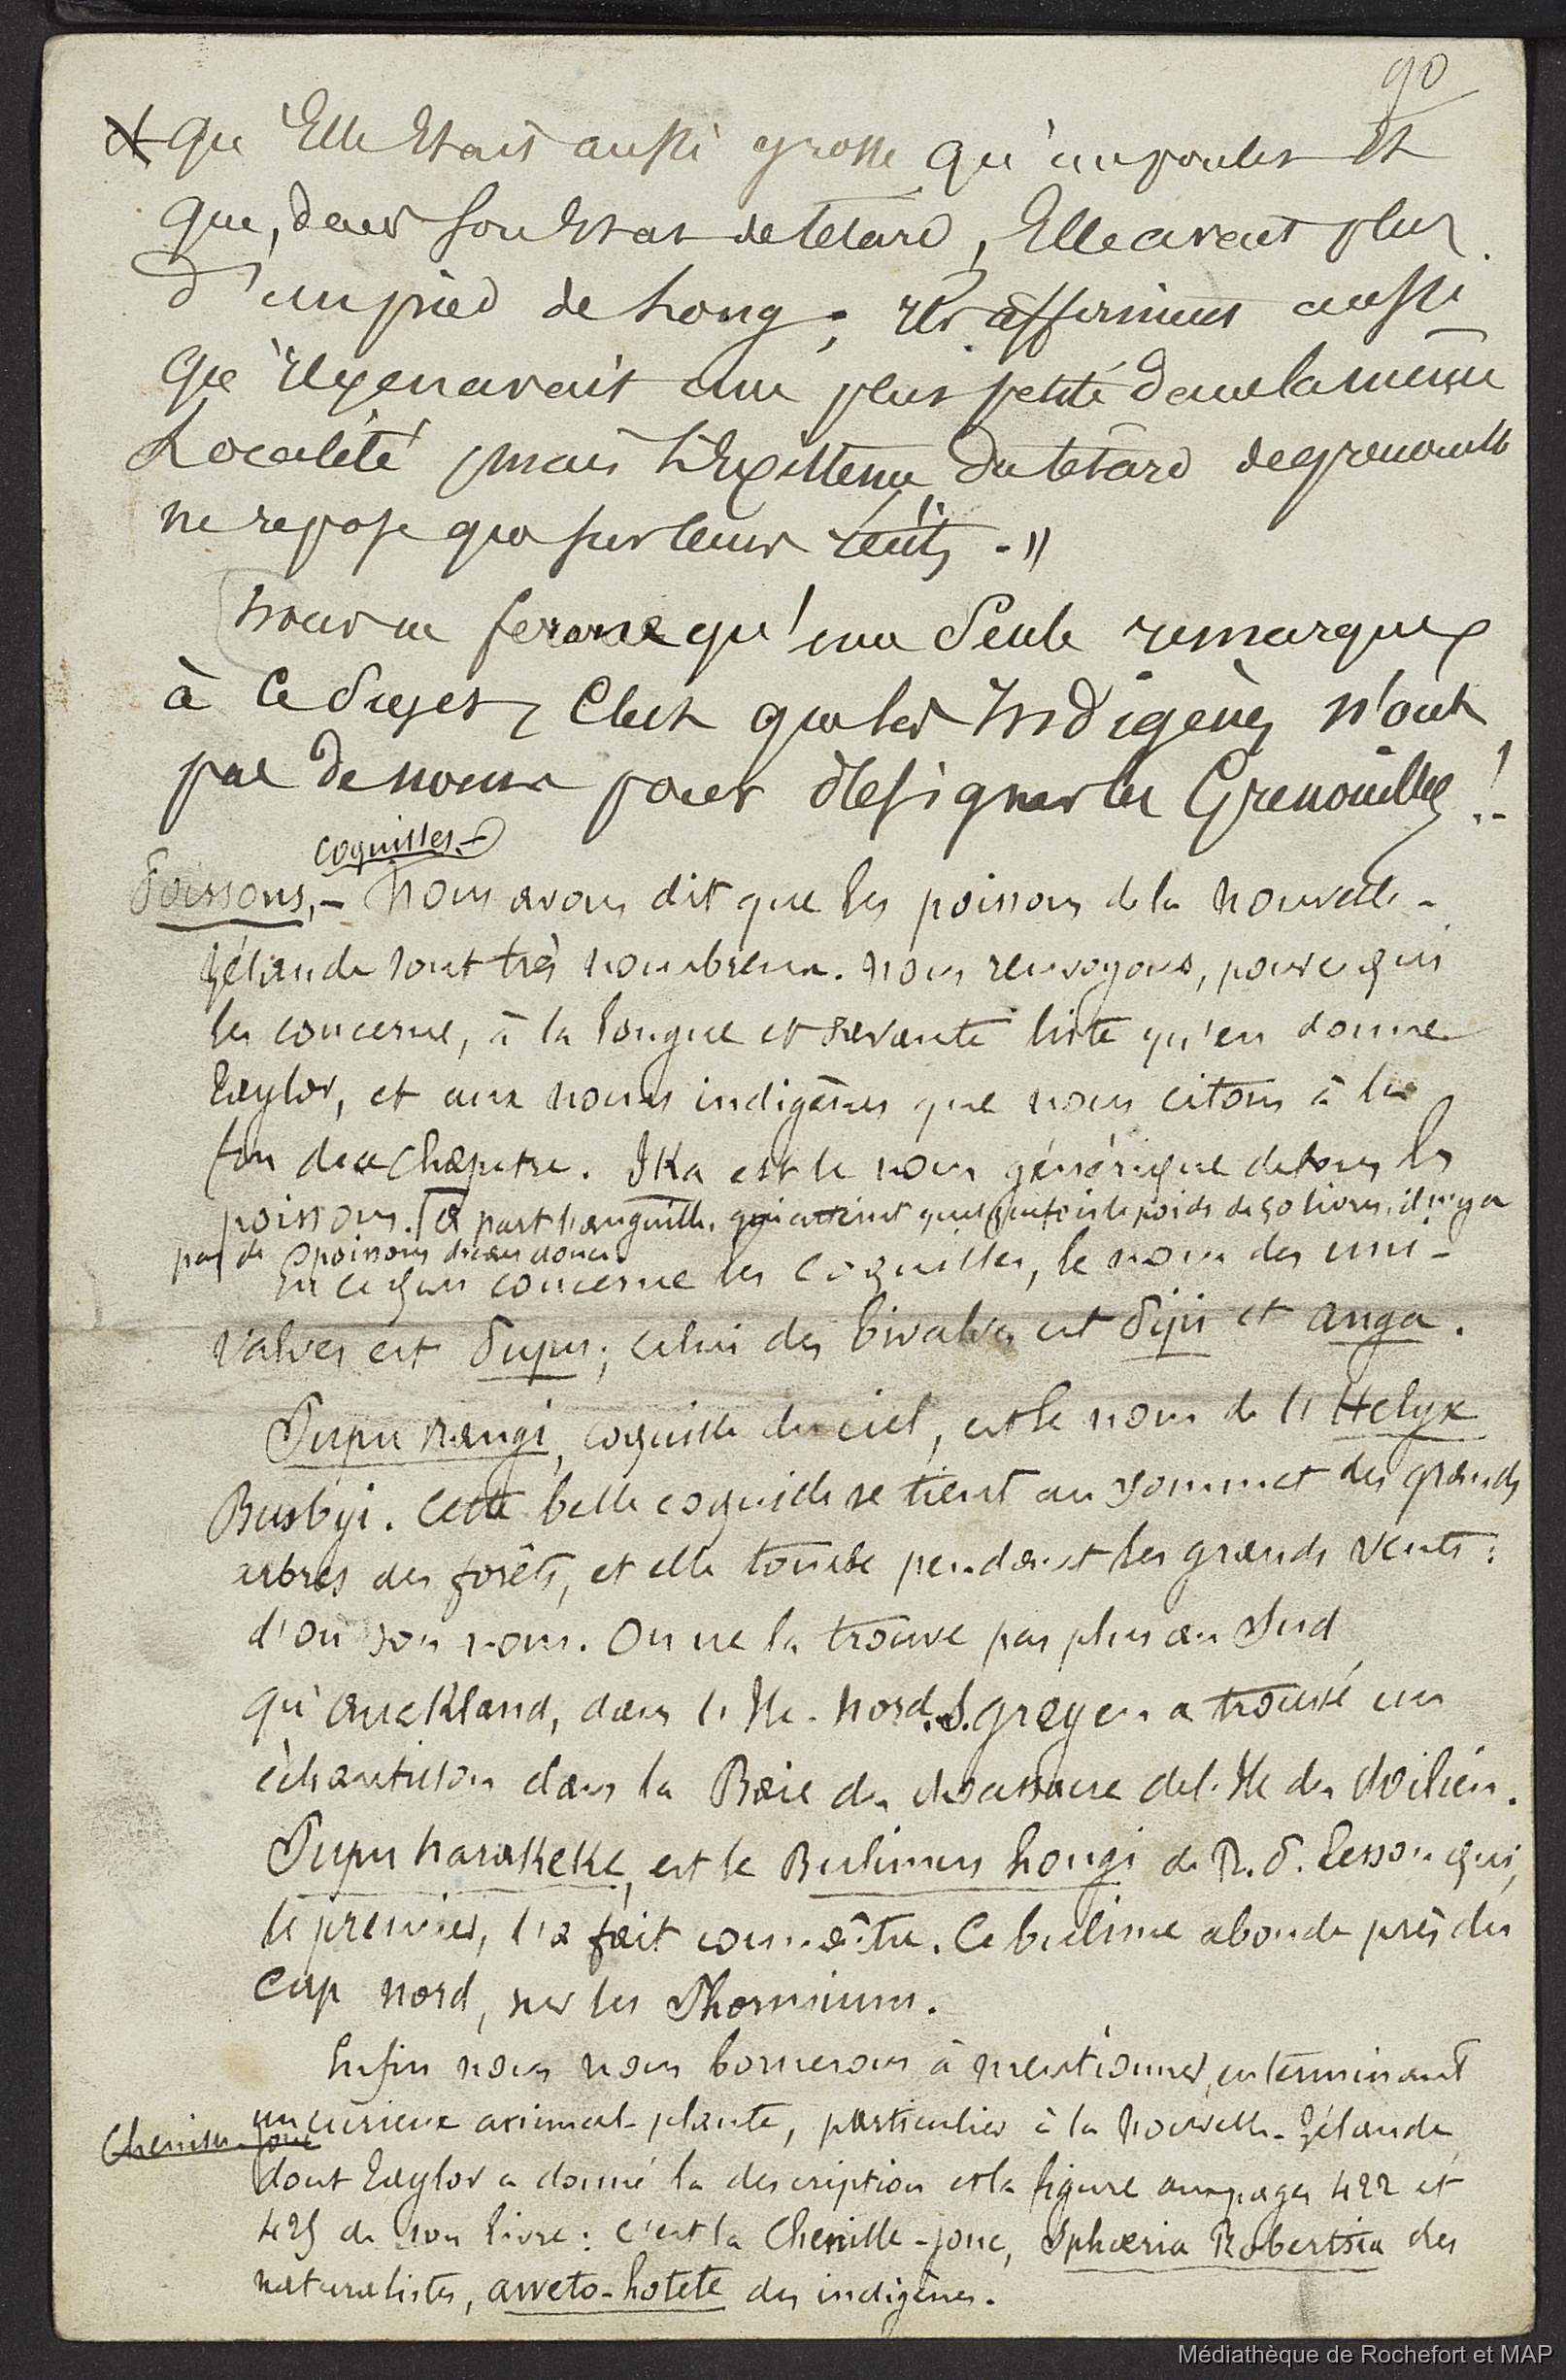 90
et qu'Elle Etait aussi grosse qu'un poulet Et
que, dans son Etat de tetard, Elle avait plus
d'un pied de Long; Ils affirment aussi
qu'Il y en avait une plus petite dans la même
Localité mais L'Existence du tétard de grenouille
ne repose que sur leurs récits. »
Nous ne ferons qu'une Seule remarque
à Ce Sujet, C'Est que les Indigènes n'ont
pas de noms pour désigner les Grenouilles !..
Coquilles.-
Poissons,- Nous avons dit que les poissons de la Nouvelle-
Zélande sont très nombreux. Nous renvoyons, pour ce qui
les concerne, à la longue et savante liste qu'en donne
Taylor, et aux noms indigènes que nous citons à la
fin du chapitre. Ika est le nom générique de tous les
poissons. a part l'anguille, qui atteint quelquefois le poids de 50 livres, il n'y a
pas de poissons d'eau douce.
En ce qui concerne les coquilles, le nom des uni-
valves est Pupu; celui des bivalves est Pipi et anga.
Pupu rangi, coquille du ciel, est le nom de l'Helyx
Busbyi. Cette belle coquille se tient au sommet des grands
arbres des forêts, et elle tombe pendant les grands vents:
d'où son nom. On ne la trouve pas plus au Sud
qu'auckland, dans l'Ile-Nord. S. Grey en a trouvé un
échantillon dans la Baie du Massacre de l'Ile du Milieu.
Pupu harakeke, est le Bulimus hongi de R. P. Lesson qui,
le premier, l'a fait connaître. Ce bulime abonde près du
Cap Nord, sur les Phormium.
Enfin nous nous bornerons à mentionner, en terminant
un curieux animal-plante, particulier à la Nouvelle-Zélande
Chenille-jonc
dont Taylor a donné la description et la figure aux pages 422 et
425 de son livre: c'est la Chenille-jonc, Sphœria Robertsia des
naturalistes, aweto-hotete des indigènes.
Médiathèque de Rochefort et MAP